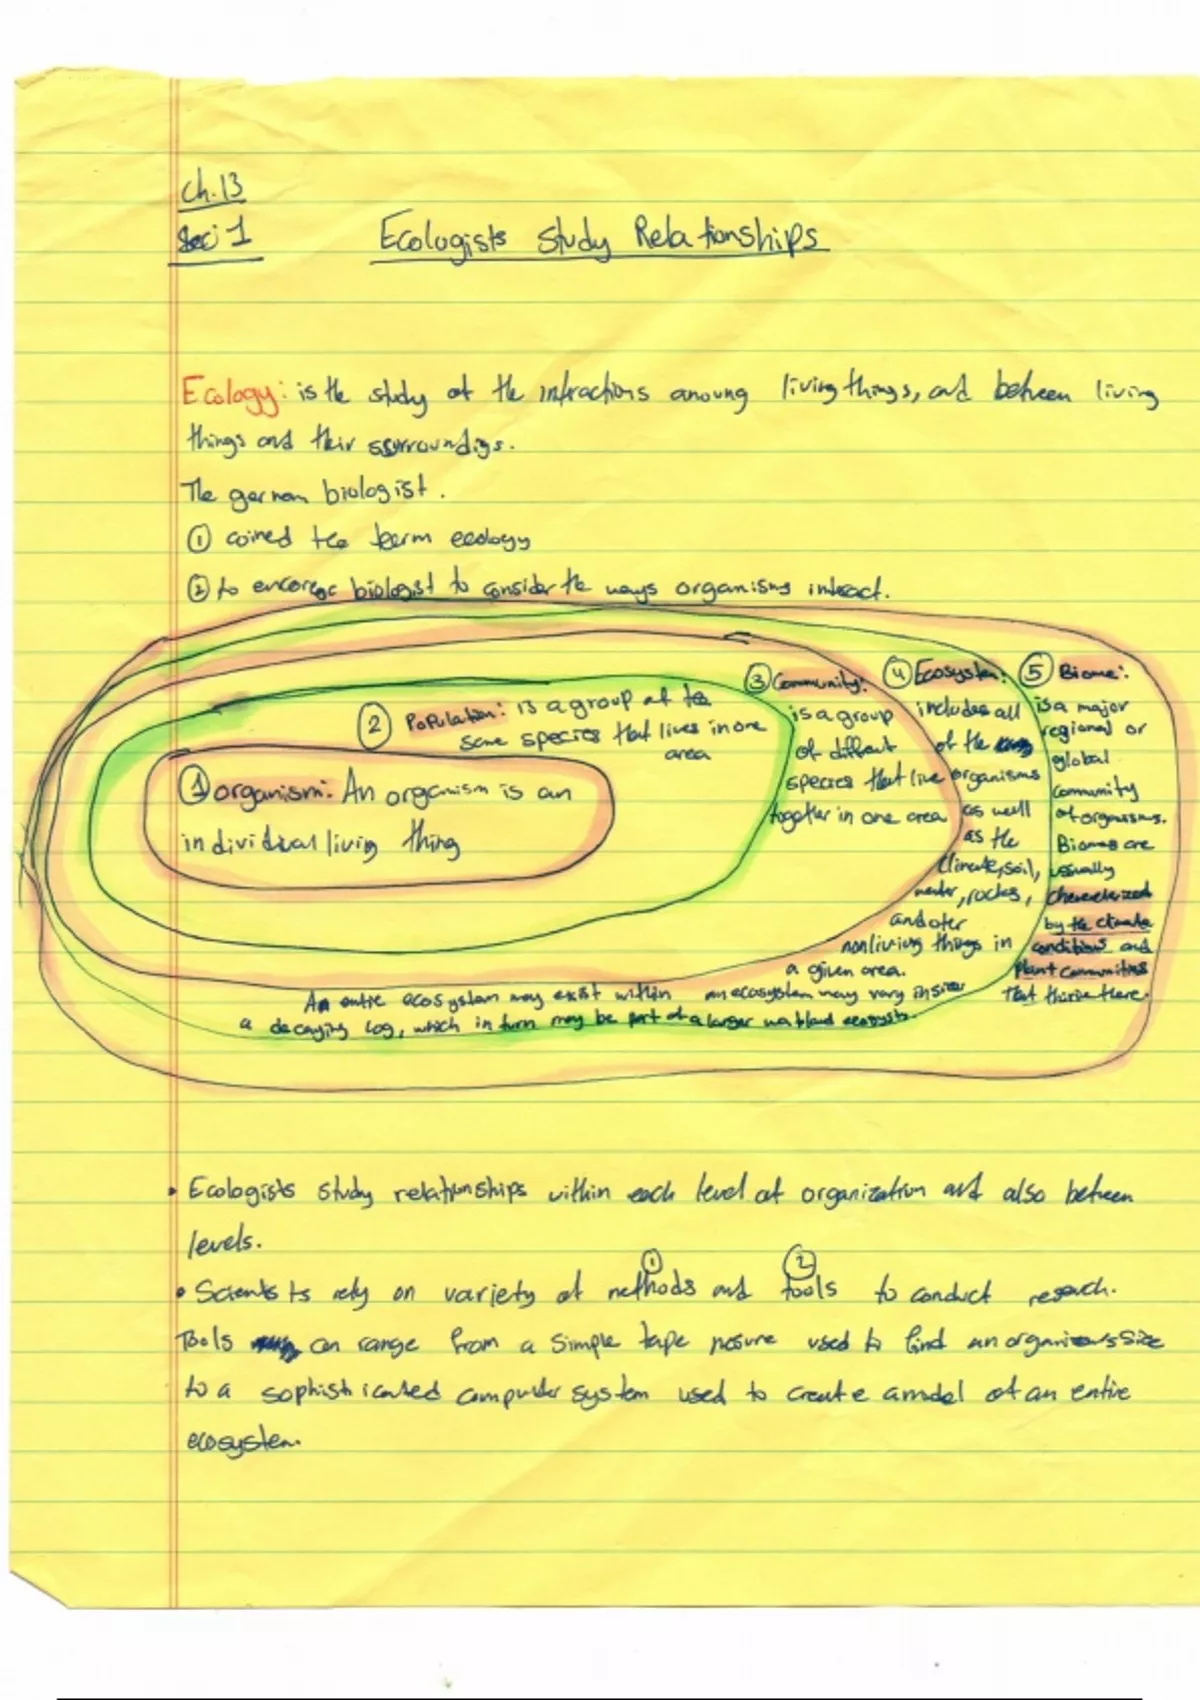 Ch.13
Sec: 1
Ecologists Study Relationships
Ecology: is the study of the intractions anoung living things, and between living
things and their ssurroundigs.
The german biologist.
① coined tee term ecology
② to encorege biologist to consider the ways organisms interact.
② Population: is a group of te
same species that lives in one
area
① organism: An orgemism is an
individual living thing
③ Community:
is a group
of diffrent
species that live
together in one area
④ Ecosystem:
includes all
of the
organisms
as well
as the
climate, soil,
water, rocks,
and oter
nonliving things in
a given area.
An entire ecosystem may exist within
an ecosystem may vary in size
a decaying log, which in turn may be part of a larger wetland
⑤ Biome:
is a major
regional or
global
community
of organisms.
Biomes are
usually
characterized
by the climate
conditions and
plant communities
that thrive there.
• Ecologists study relationships within each level of organization and also between
levels.
① ②
• Scientists rely on variety of methods and tools to conduct reseach.
Tools can range from a simple tape mesure used to find an organisms size
to a sophisticated computer system used to create a model of an entire
ecosystem.